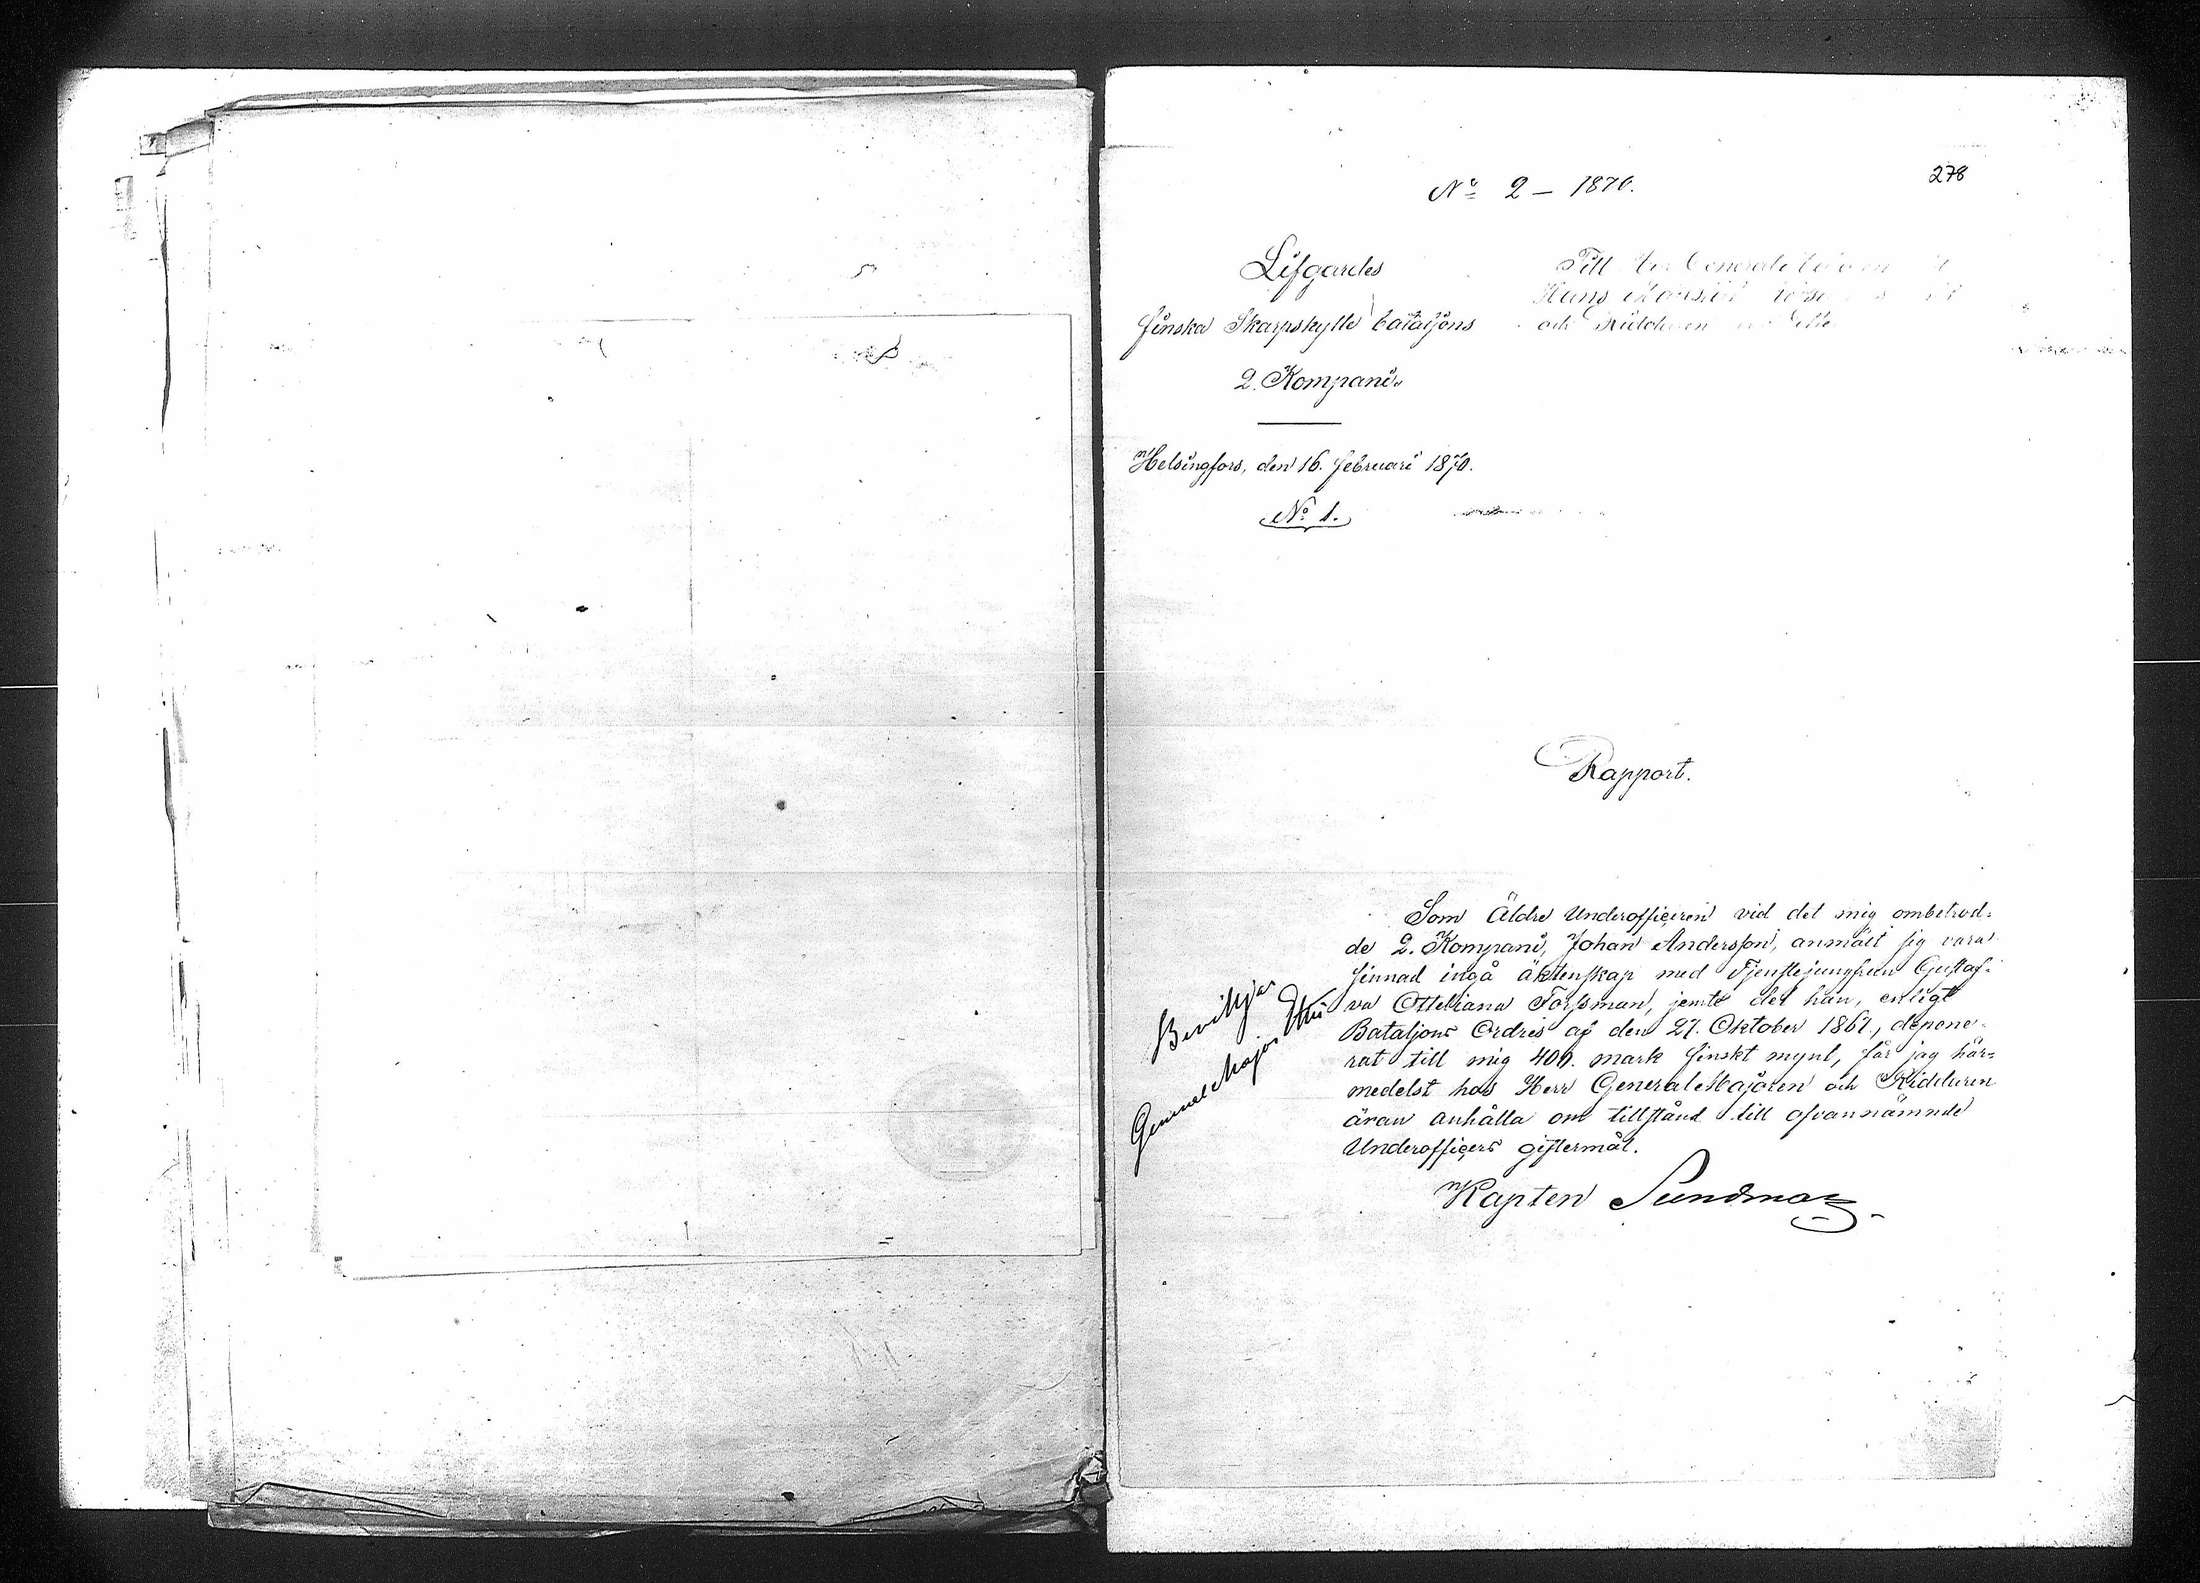 No 2 – 1870.
278
Lifgardes
finska Skarpskytte bataljons
2. Kompani.
Till
Hans
och Riddaren
Helsingfors, den 16. februari 1870.
No 1.
Rapport.
Som Äldre Underofficeren vid det mig ombetrod-
de 2. Kompani, Johan Andersson, anmält sig vara
sinnad ingå äktenskap med Tjenstejungfrun Gustaf-
va Otteliana Forssman, jemte det han, enligt
Bataljons Ordres af den 27. Oktober 1867, depone-
rat till mig 400. mark finskt mynt, får jag här-
medelst hos Herr General Majoren och Riddaren
äran anhålla om tillstånd till ofvannämnde
Underofficers giftermål.
Kapten Sundman
Beviljas
General Major